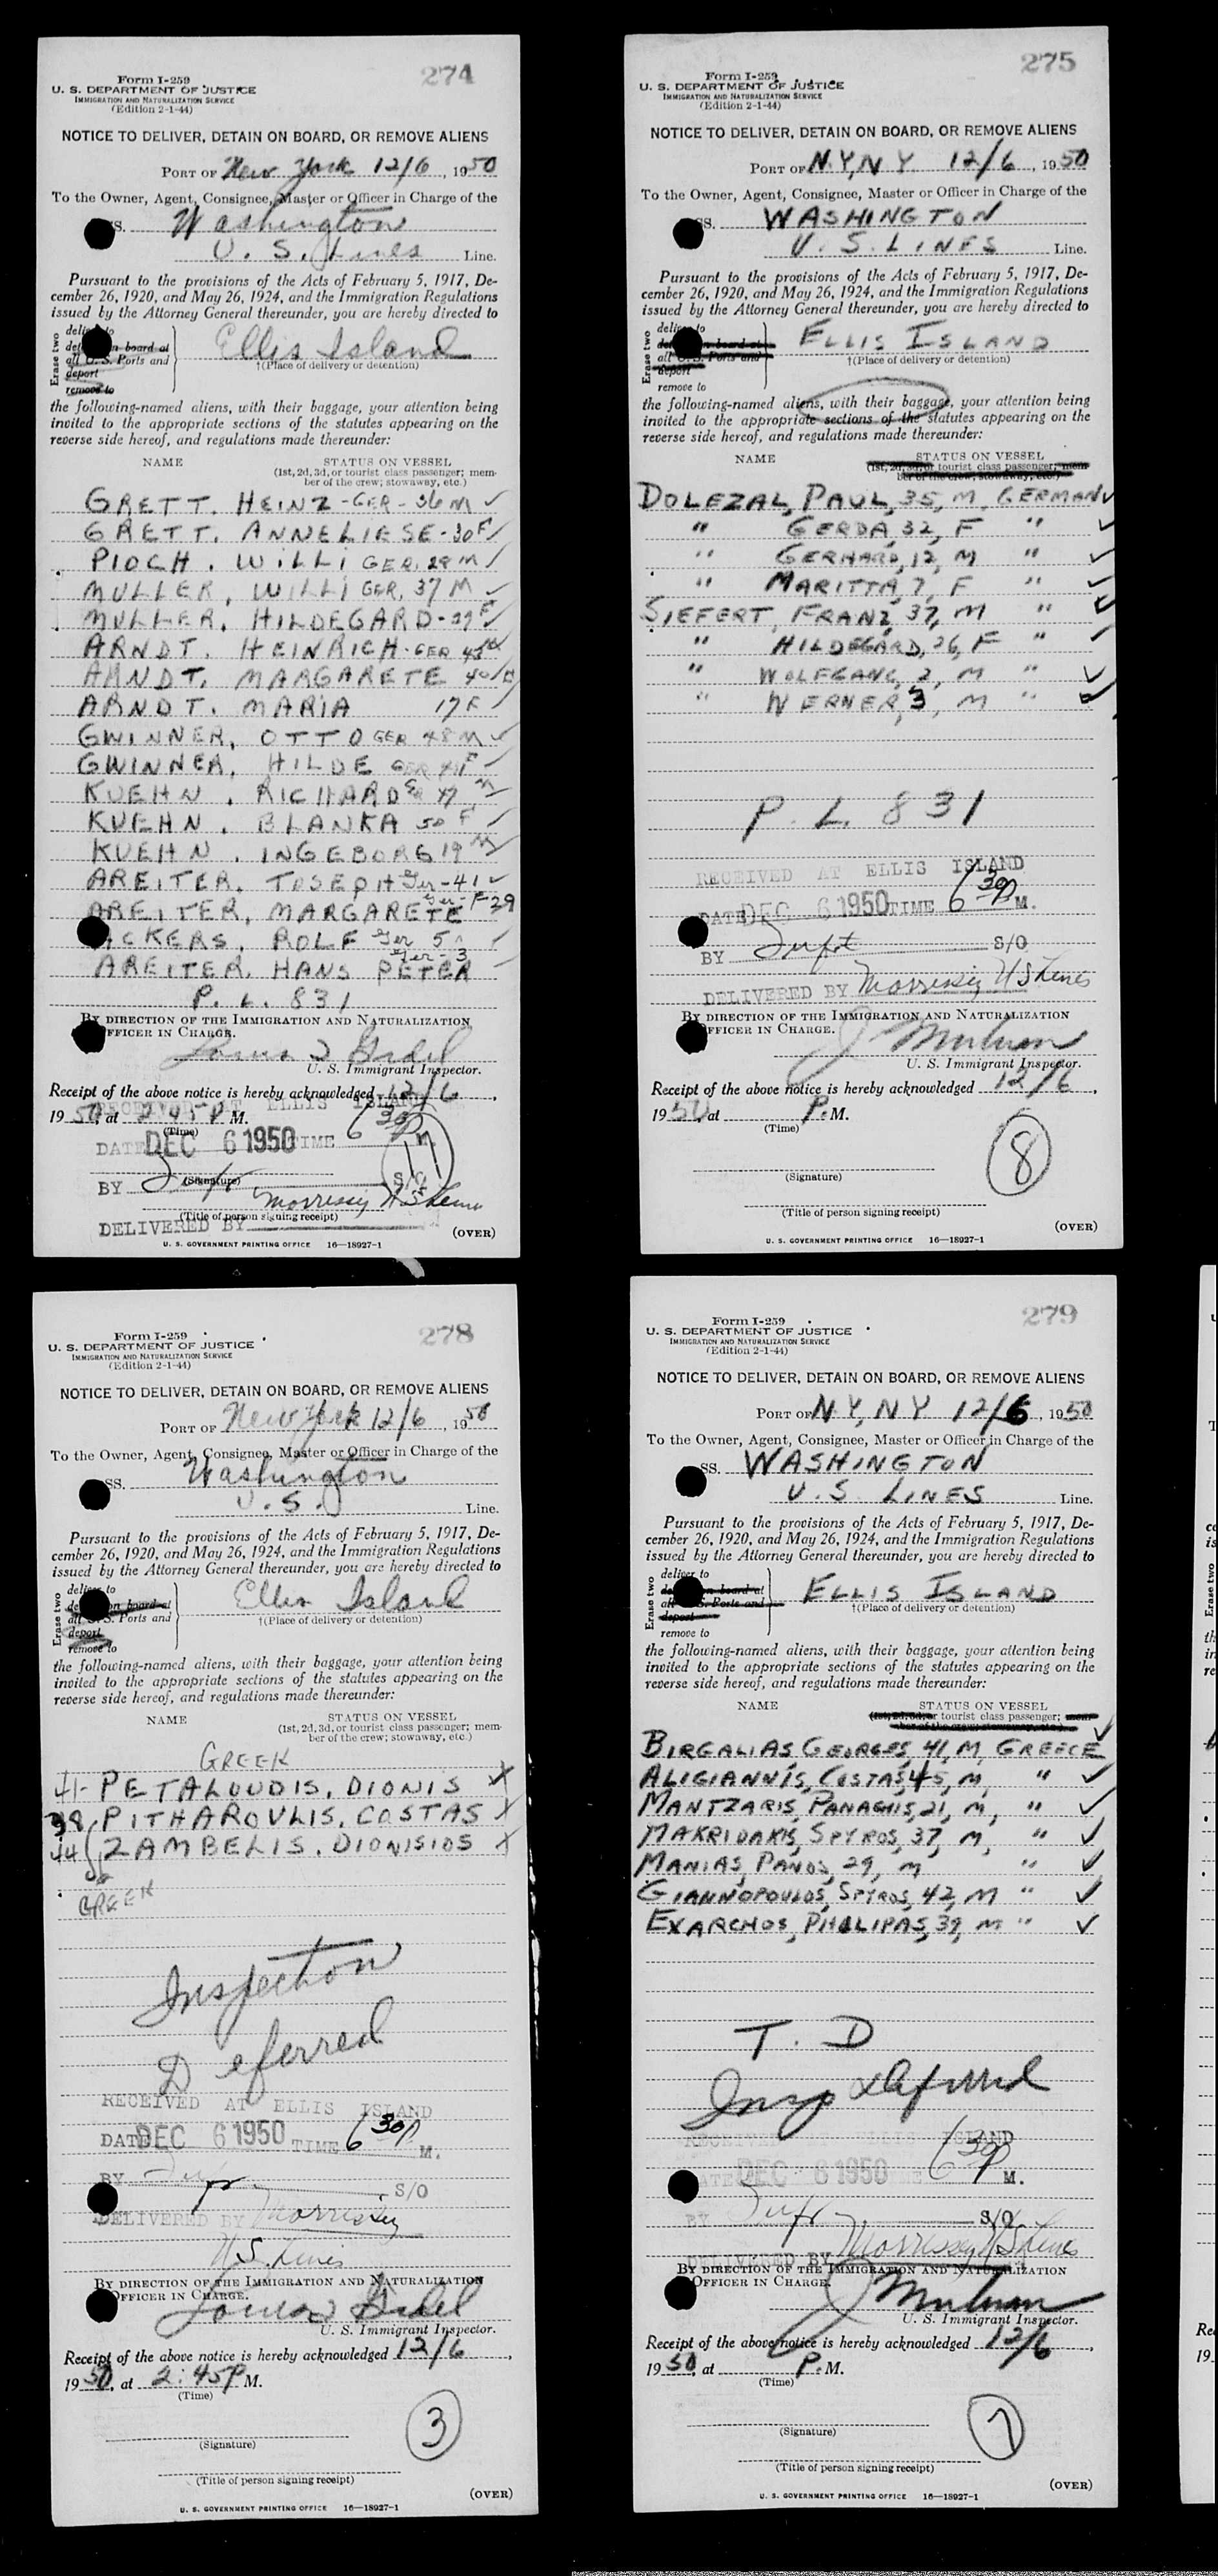 274
Form I-259
U. S. DEPARTMENT OF JUSTICE
IMMIGRATION AND NATURALIZATION SERVICE
(Edition 2-1-44)
NOTICE TO DELIVER, DETAIN ON BOARD, OR REMOVE ALIENS
PORT OF New York 12/6, 1950
To the Owner, Agent, Consignee, Master or Officer in Charge of the
SS. Washington
U. S. Lines Line.
Pursuant to the provisions of the Acts of February 5, 1917, De-
cember 26, 1920, and May 26, 1924, and the Immigration Regulations
issued by the Attorney General thereunder, you are hereby directed to
Erase two
deliver to
on board at
all U. S. Ports and
deport
remove to
Ellis Island
†(Place of delivery or detention)
the following-named aliens, with their baggage, your attention being
invited to the appropriate sections of the statutes appearing on the
reverse side hereof, and regulations made thereunder:
NAME STATUS ON VESSEL
(1st, 2d, 3d, or tourist class passenger; mem-
ber of the crew; stowaway, etc.)
GRETT. HEINZ-GER-36 M ✓
GRETT. ANNELIESE-30 F ✓
PIOCH. WILLI GER. 29 M ✓
MULLER, WILLI GER. 37 M ✓
MULLER, HILDEGARD-37 F ✓
ARNDT. HEINRICH-GER 43
ARNDT. MARGARETE 40
ARNDT. MARIA 17 F ✓
GWINNER, OTTO GER 48 M ✓
GWINNER, HILDE GER 41 F ✓
KUEHN, RICHARD 47 M
KUEHN, BLANKA 50 F ✓
KUEHN, INGEBORG 19
AREITER, JOSEPH Ger-41 ✓
AREITER, MARGARETE Ger-F-29
ACKERS, ROLF Ger 5 ✓
AREITER, HANS PETER Ger-3
P. L. 831
BY DIRECTION OF THE IMMIGRATION AND NATURALIZATION
OFFICER IN CHARGE.
U. S. Immigrant Inspector.
Receipt of the above notice is hereby acknowledged 12/6,
1950, at 2:45 P M.
(Time)
RECEIVED AT ELLIS ISLAND
DATE DEC 6 1950 TIME 6 30 P M.
11
BY S/O
(Signature)
Morrissey U S Lines
(Title of person signing receipt)
DELIVERED BY
(OVER)
U. S. GOVERNMENT PRINTING OFFICE 16—18927-1
275
Form I-259
U. S. DEPARTMENT OF JUSTICE
IMMIGRATION AND NATURALIZATION SERVICE
(Edition 2-1-44)
NOTICE TO DELIVER, DETAIN ON BOARD, OR REMOVE ALIENS
PORT OF N.Y, N.Y. 12/6, 1950
To the Owner, Agent, Consignee, Master or Officer in Charge of the
SS. WASHINGTON
U. S. LINES Line.
Pursuant to the provisions of the Acts of February 5, 1917, De-
cember 26, 1920, and May 26, 1924, and the Immigration Regulations
issued by the Attorney General thereunder, you are hereby directed to
Erase two
deliver to
on board at
all U. S. Ports and
deport
remove to
ELLIS ISLAND
†(Place of delivery or detention)
the following-named aliens, with their baggage, your attention being
invited to the appropriate sections of the statutes appearing on the
reverse side hereof, and regulations made thereunder:
NAME STATUS ON VESSEL
(1st, 2d, 3d, or tourist class passenger; mem-
ber of the crew; stowaway, etc.)
DOLEZAL, PAUL, 35, M, GERMAN ✓
" GERDA, 32, F " ✓
" GERHARD, 12, M " ✓
" MARITTA, 7, F " ✓
SIEFERT, FRANZ, 37, M " ✓
" HILDEGARD, 26, F " ✓
" WOLFGANG, 2, M " ✓
" WERNER, 3, M " ✓
P. L. 831
RECEIVED AT ELLIS ISLAND
DATE DEC 6 1950 TIME 6 30 P M.
BY Supt S/O
DELIVERED BY Morrissey U S Lines
BY DIRECTION OF THE IMMIGRATION AND NATURALIZATION
OFFICER IN CHARGE.
U. S. Immigrant Inspector.
Receipt of the above notice is hereby acknowledged 12/6,
1950, at P. M.
(Time)
8
(Signature)
(Title of person signing receipt)
(OVER)
U. S. GOVERNMENT PRINTING OFFICE 16—18927-1
278
Form I-259
U. S. DEPARTMENT OF JUSTICE
IMMIGRATION AND NATURALIZATION SERVICE
(Edition 2-1-44)
NOTICE TO DELIVER, DETAIN ON BOARD, OR REMOVE ALIENS
PORT OF New York 12/6, 1950
To the Owner, Agent, Consignee, Master or Officer in Charge of the
SS. Washington
U. S. Line.
Pursuant to the provisions of the Acts of February 5, 1917, De-
cember 26, 1920, and May 26, 1924, and the Immigration Regulations
issued by the Attorney General thereunder, you are hereby directed to
Erase two
deliver to
on board at
all U. S. Ports and
deport
remove to
Ellis Island
†(Place of delivery or detention)
the following-named aliens, with their baggage, your attention being
invited to the appropriate sections of the statutes appearing on the
reverse side hereof, and regulations made thereunder:
NAME STATUS ON VESSEL
(1st, 2d, 3d, or tourist class passenger; mem-
ber of the crew; stowaway, etc.)
GREEK
41- PETALOUDIS, DIONIS
39, PITHAROULIS, COSTAS
44 ZAMBELIS, DIONISIOS
GREEK
Inspection
Deferred
RECEIVED AT ELLIS ISLAND
DATE DEC 6 1950 TIME 6 30 P M.
BY S/O
DELIVERED BY Morrissey
U S. Lines
BY DIRECTION OF THE IMMIGRATION AND NATURALIZATION
OFFICER IN CHARGE.
U. S. Immigrant Inspector.
Receipt of the above notice is hereby acknowledged 12/6,
1950, at 2:45 P M.
(Time)
3
(Signature)
(Title of person signing receipt)
(OVER)
U. S. GOVERNMENT PRINTING OFFICE 16—18927-1
279
Form I-259
U. S. DEPARTMENT OF JUSTICE
IMMIGRATION AND NATURALIZATION SERVICE
(Edition 2-1-44)
NOTICE TO DELIVER, DETAIN ON BOARD, OR REMOVE ALIENS
PORT OF N.Y, NY 12/6, 1950
To the Owner, Agent, Consignee, Master or Officer in Charge of the
SS. WASHINGTON
U. S. LINES Line.
Pursuant to the provisions of the Acts of February 5, 1917, De-
cember 26, 1920, and May 26, 1924, and the Immigration Regulations
issued by the Attorney General thereunder, you are hereby directed to
Erase two
deliver to
on board at
all U. S. Ports and
deport
remove to
ELLIS ISLAND
†(Place of delivery or detention)
the following-named aliens, with their baggage, your attention being
invited to the appropriate sections of the statutes appearing on the
reverse side hereof, and regulations made thereunder:
NAME STATUS ON VESSEL
(1st, 2d, 3d, or tourist class passenger; mem-
ber of the crew; stowaway, etc.)
BIRGALIAS, GEORGES, 41, M, GREECE ✓
ALIGIANNIS, COSTAS, 45, M, " ✓
MANTZARIS, PANAGHIS, 21, M, " ✓
MAKRIDAKIS, SPYROS, 37, M, " ✓
MANIAS, PANOS, 29, M " ✓
GIANNOPOULOS, SPYROS, 42, M " ✓
EXARCHOS, PHILIPAS, 39, M " ✓
T. D
Insp Deferred
RECEIVED AT ELLIS ISLAND
DATE DEC 6 1950 6 30 P M.
BY Supt S/O
DELIVERED BY Morrissey U S Lines
BY DIRECTION OF THE IMMIGRATION AND NATURALIZATION
OFFICER IN CHARGE.
U. S. Immigrant Inspector.
Receipt of the above notice is hereby acknowledged 12/6,
1950, at P. M.
(Time)
7
(Signature)
(Title of person signing receipt)
(OVER)
U. S. GOVERNMENT PRINTING OFFICE 16—18927-1